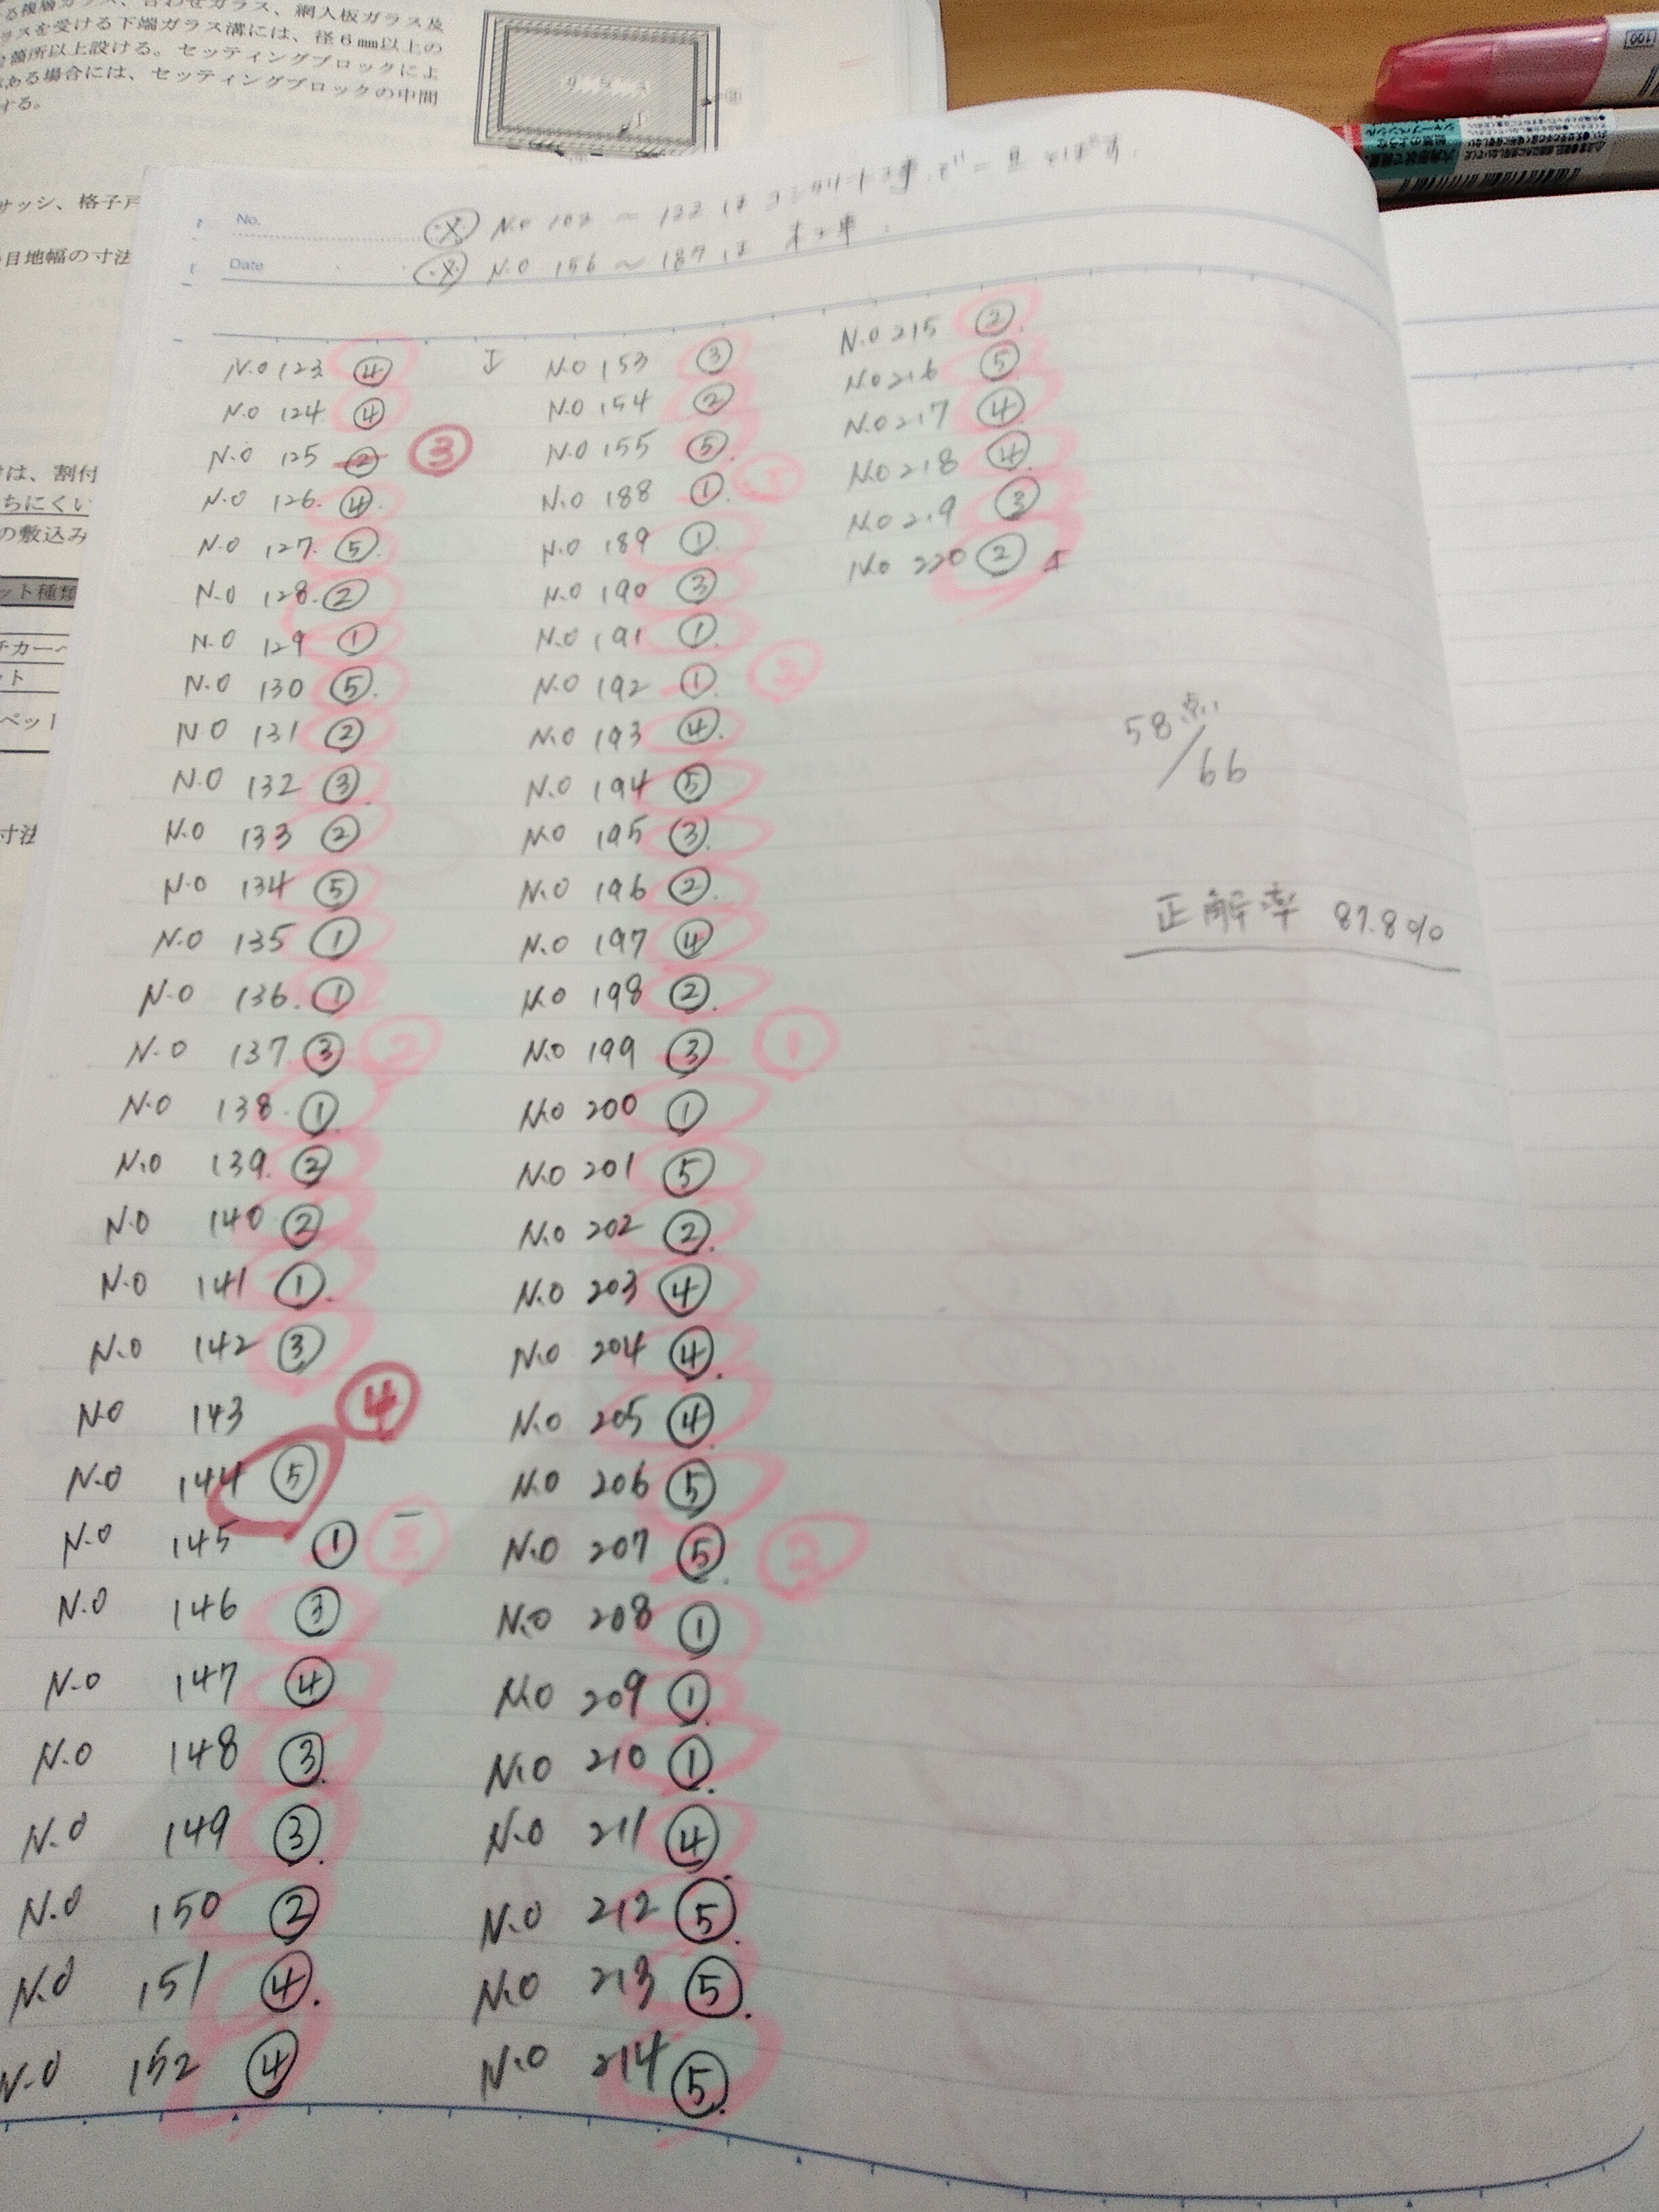 る複層ガラス、合わせガラス、網入板ガラス及
ラスを受ける下端ガラス溝には、径6㎜以上の
箇所以上設ける。セッティングブロックによ
ある場合には、セッティングブロックの中間
する。
サッシ、格子戸
目地幅の寸法
は、割付
ちにくい
の敷込み
ット種類
ット
寸法
No.
Date
※ N.O 102 ~ 122 は コンクリート工事
※ N.O 156 ~ 187 は
N.O 123 ④
N.O 124 ④
N.O 125 ② ③
N.O 126 ④
N.O 127 ⑤
N.O 128 ②
N.O 129 ①
N.O 130 ⑤
N.O 131 ②
N.O 132 ③
N.O 133 ②
N.O 134 ⑤
N.O 135 ①
N.O 136 ①
N.O 137 ③ ②
N.O 138 ①
N.O 139 ②
N.O 140 ②
N.O 141 ①
N.O 142 ③
N.O 143 ④
N.O 144 ⑤
N.O 145 ①
N.O 146 ③
N.O 147 ④
N.O 148 ③
N.O 149 ③
N.O 150 ②
N.O 151 ④
N.O 152 ④
N.O 153 ③
N.O 154 ②
N.O 155 ⑤
N.O 188 ①
N.O 189 ①
N.O 190 ③
N.O 191 ①
N.O 192 ① ②
N.O 193 ④
N.O 194 ⑤
N.O 195 ③
N.O 196 ②
N.O 197 ④
N.O 198 ②
N.O 199 ③ ①
N.O 200 ①
N.O 201 ⑤
N.O 202 ②
N.O 203 ④
N.O 204 ④
N.O 205 ④
N.O 206 ⑤
N.O 207 ⑤ ③
N.O 208 ①
N.O 209 ①
N.O 210 ①
N.O 211 ④
N.O 212 ⑤
N.O 213 ⑤
N.O 214 ⑤
N.O 215 ②
N.O 216 ⑤
N.O 217 ④
N.O 218 ④
N.O 219 ③
N.O 220 ②
58点/66
正解率 87.8%
シャープペンシル
100